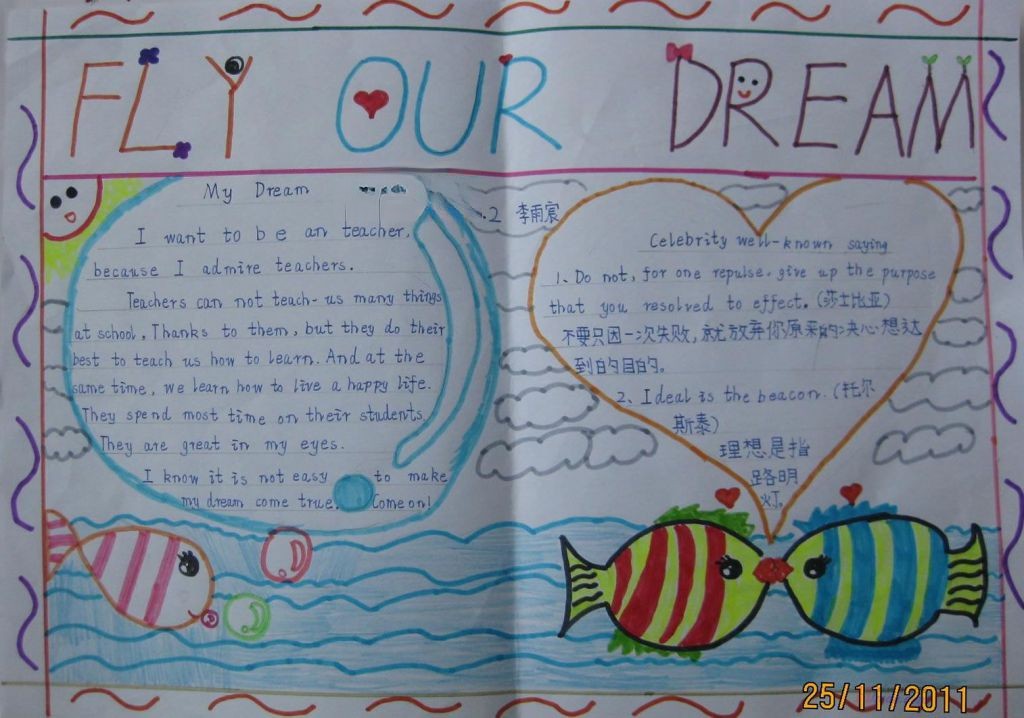 FLY OUR DREAM
My Dream
I want to be an teacher,
because I admire teachers.
Teachers can not teach-us many things
at school. Thanks to them, but they do their
best to teach us how to learn. And at the
same time, we learn how to live a happy life.
They spend most time on their students.
They are great in my eyes.
I know it is not easy to make
my dream come true. Come on!
.2 李雨宸
Celebrity well-known saying
1、Do not, for one repulse, give up the purpose
that you resolved to effect. (莎士比亚)
不要只因一次失败,就放弃你原来的决心想达
到的目的。
2、Ideal is the beacon. (托尔
斯泰)
理想是指
路明
灯。
25/11/2011